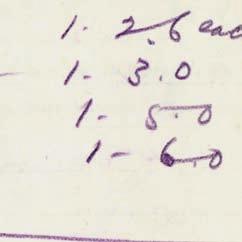 1. 2.6 eac
- 1- 3.0
1- 5.0
1- 6.0